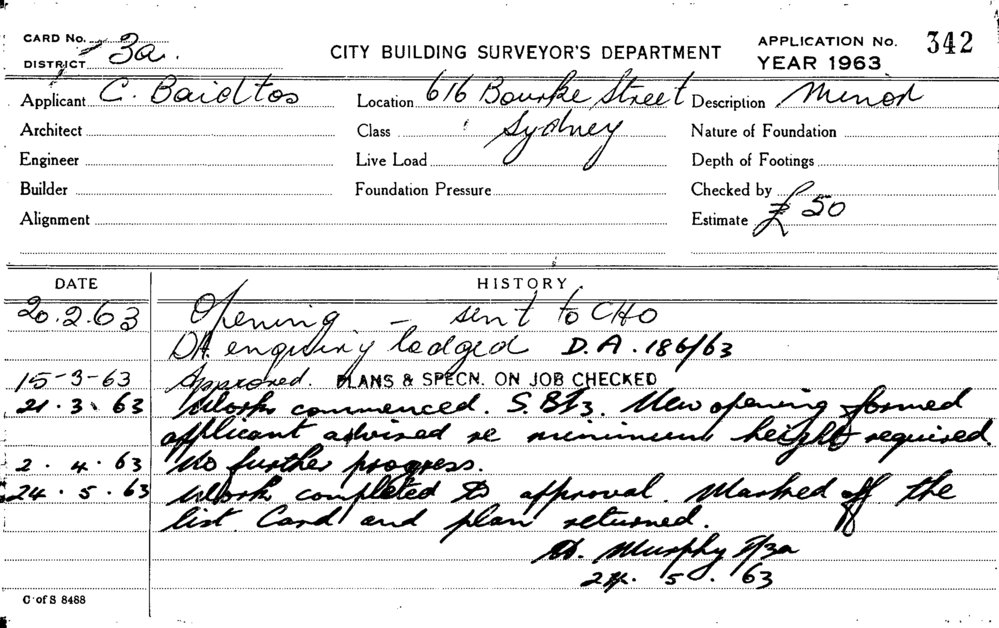 CARD No.
DISTRICT 3a.
CITY BUILDING SURVEYOR'S DEPARTMENT
APPLICATION No. 342
YEAR 1963
Applicant C. Baidtos Location 616 Bourke Street Description Minor
Architect Class Sydney Nature of Foundation
Engineer Live Load Depth of Footings
Builder Foundation Pressure Checked by
Alignment Estimate £ 50
DATE HISTORY
20.2.63 Opening - sent to CHO
DA. enquiry lodged D.A. 186/63
15-3-63 Approved. PLANS & SPECN. ON JOB CHECKED
21.3.63 Work commenced. New opening formed
applicant advised re minimum height required.
2.4.63 No further progress.
24.5.63 Work completed to approval. Marked off the
list. Card and plan returned.
Murphy
24.5.63
C of S 8488